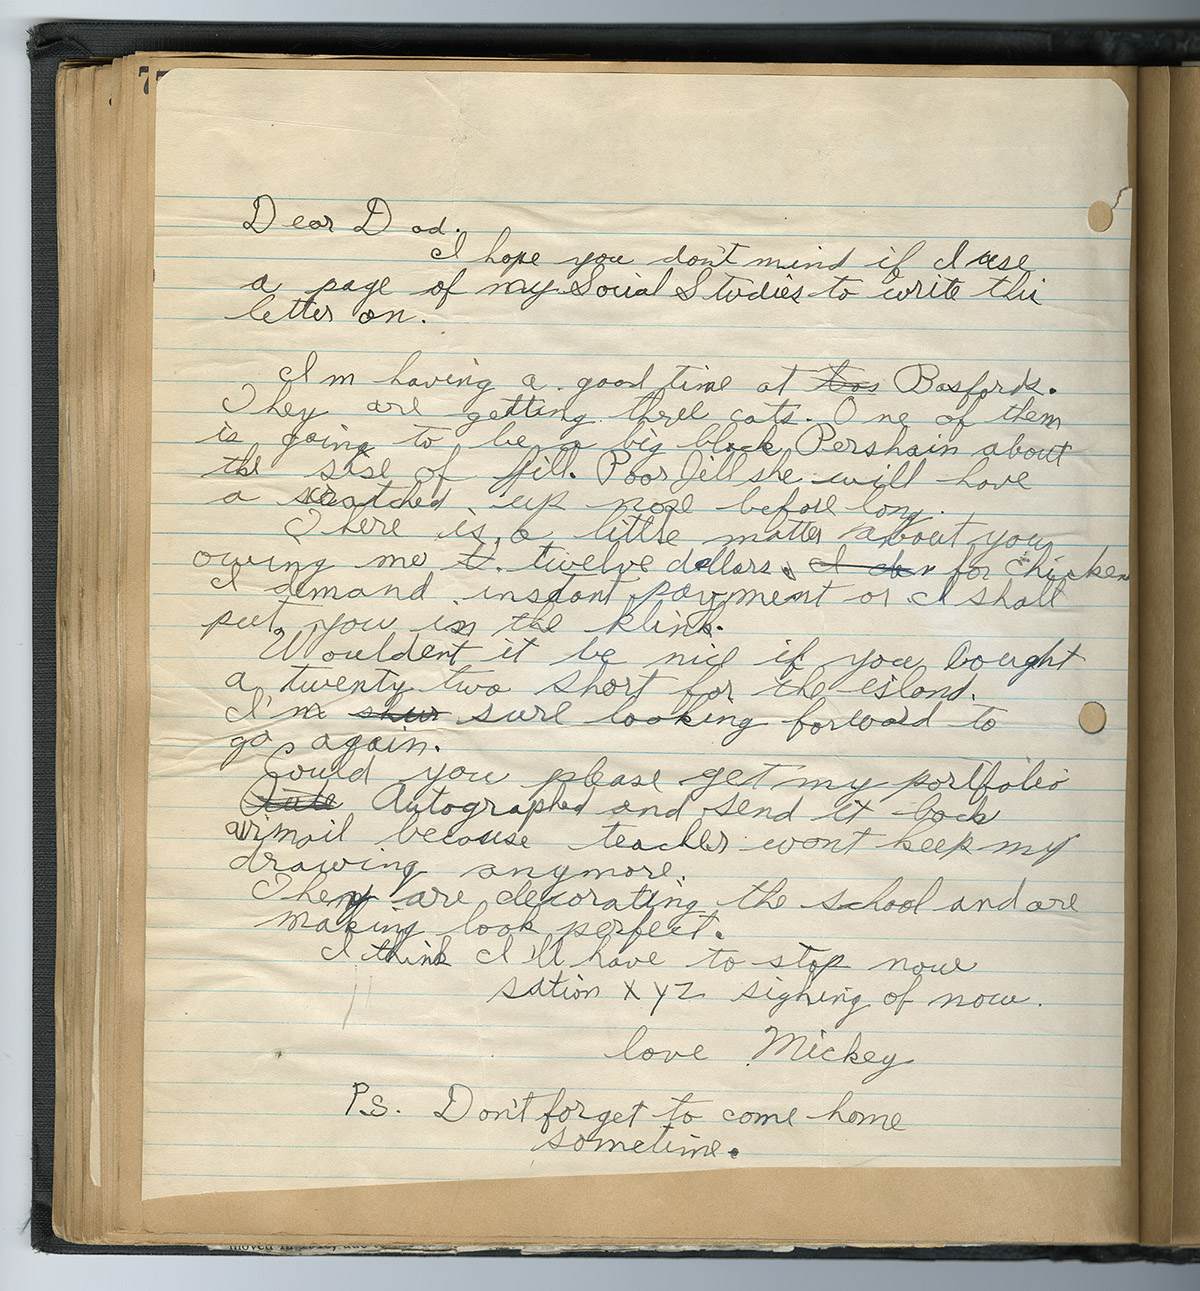 77
Dear Dad.
I hope you don't mind if I use
a page of my Social Studies to write this
letter on.
I'm having a good time at Basfords.
They are getting three cats. One of them
is going to be a big black Pershain about
the sise of Jill. Poor Jill she will have
a scratched up nose before long.
There is a little matter about you
owing me twelve dollars. for chicken
I demand instant payment or I shall
put you in the klink.
Wouldent it be nice if you bought
a twenty two short for the island.
I'm shur sure looking forward to
go again.
Could you please get my portfolio
Autographed and send it back
airmail because teacher wont keep my
drawing anymore.
They are decorating the school and are
making look perfect.
I think I'll have to stop now
sation XYZ signing of now.
love Mickey
P.S. Don't forget to come home
sometime.